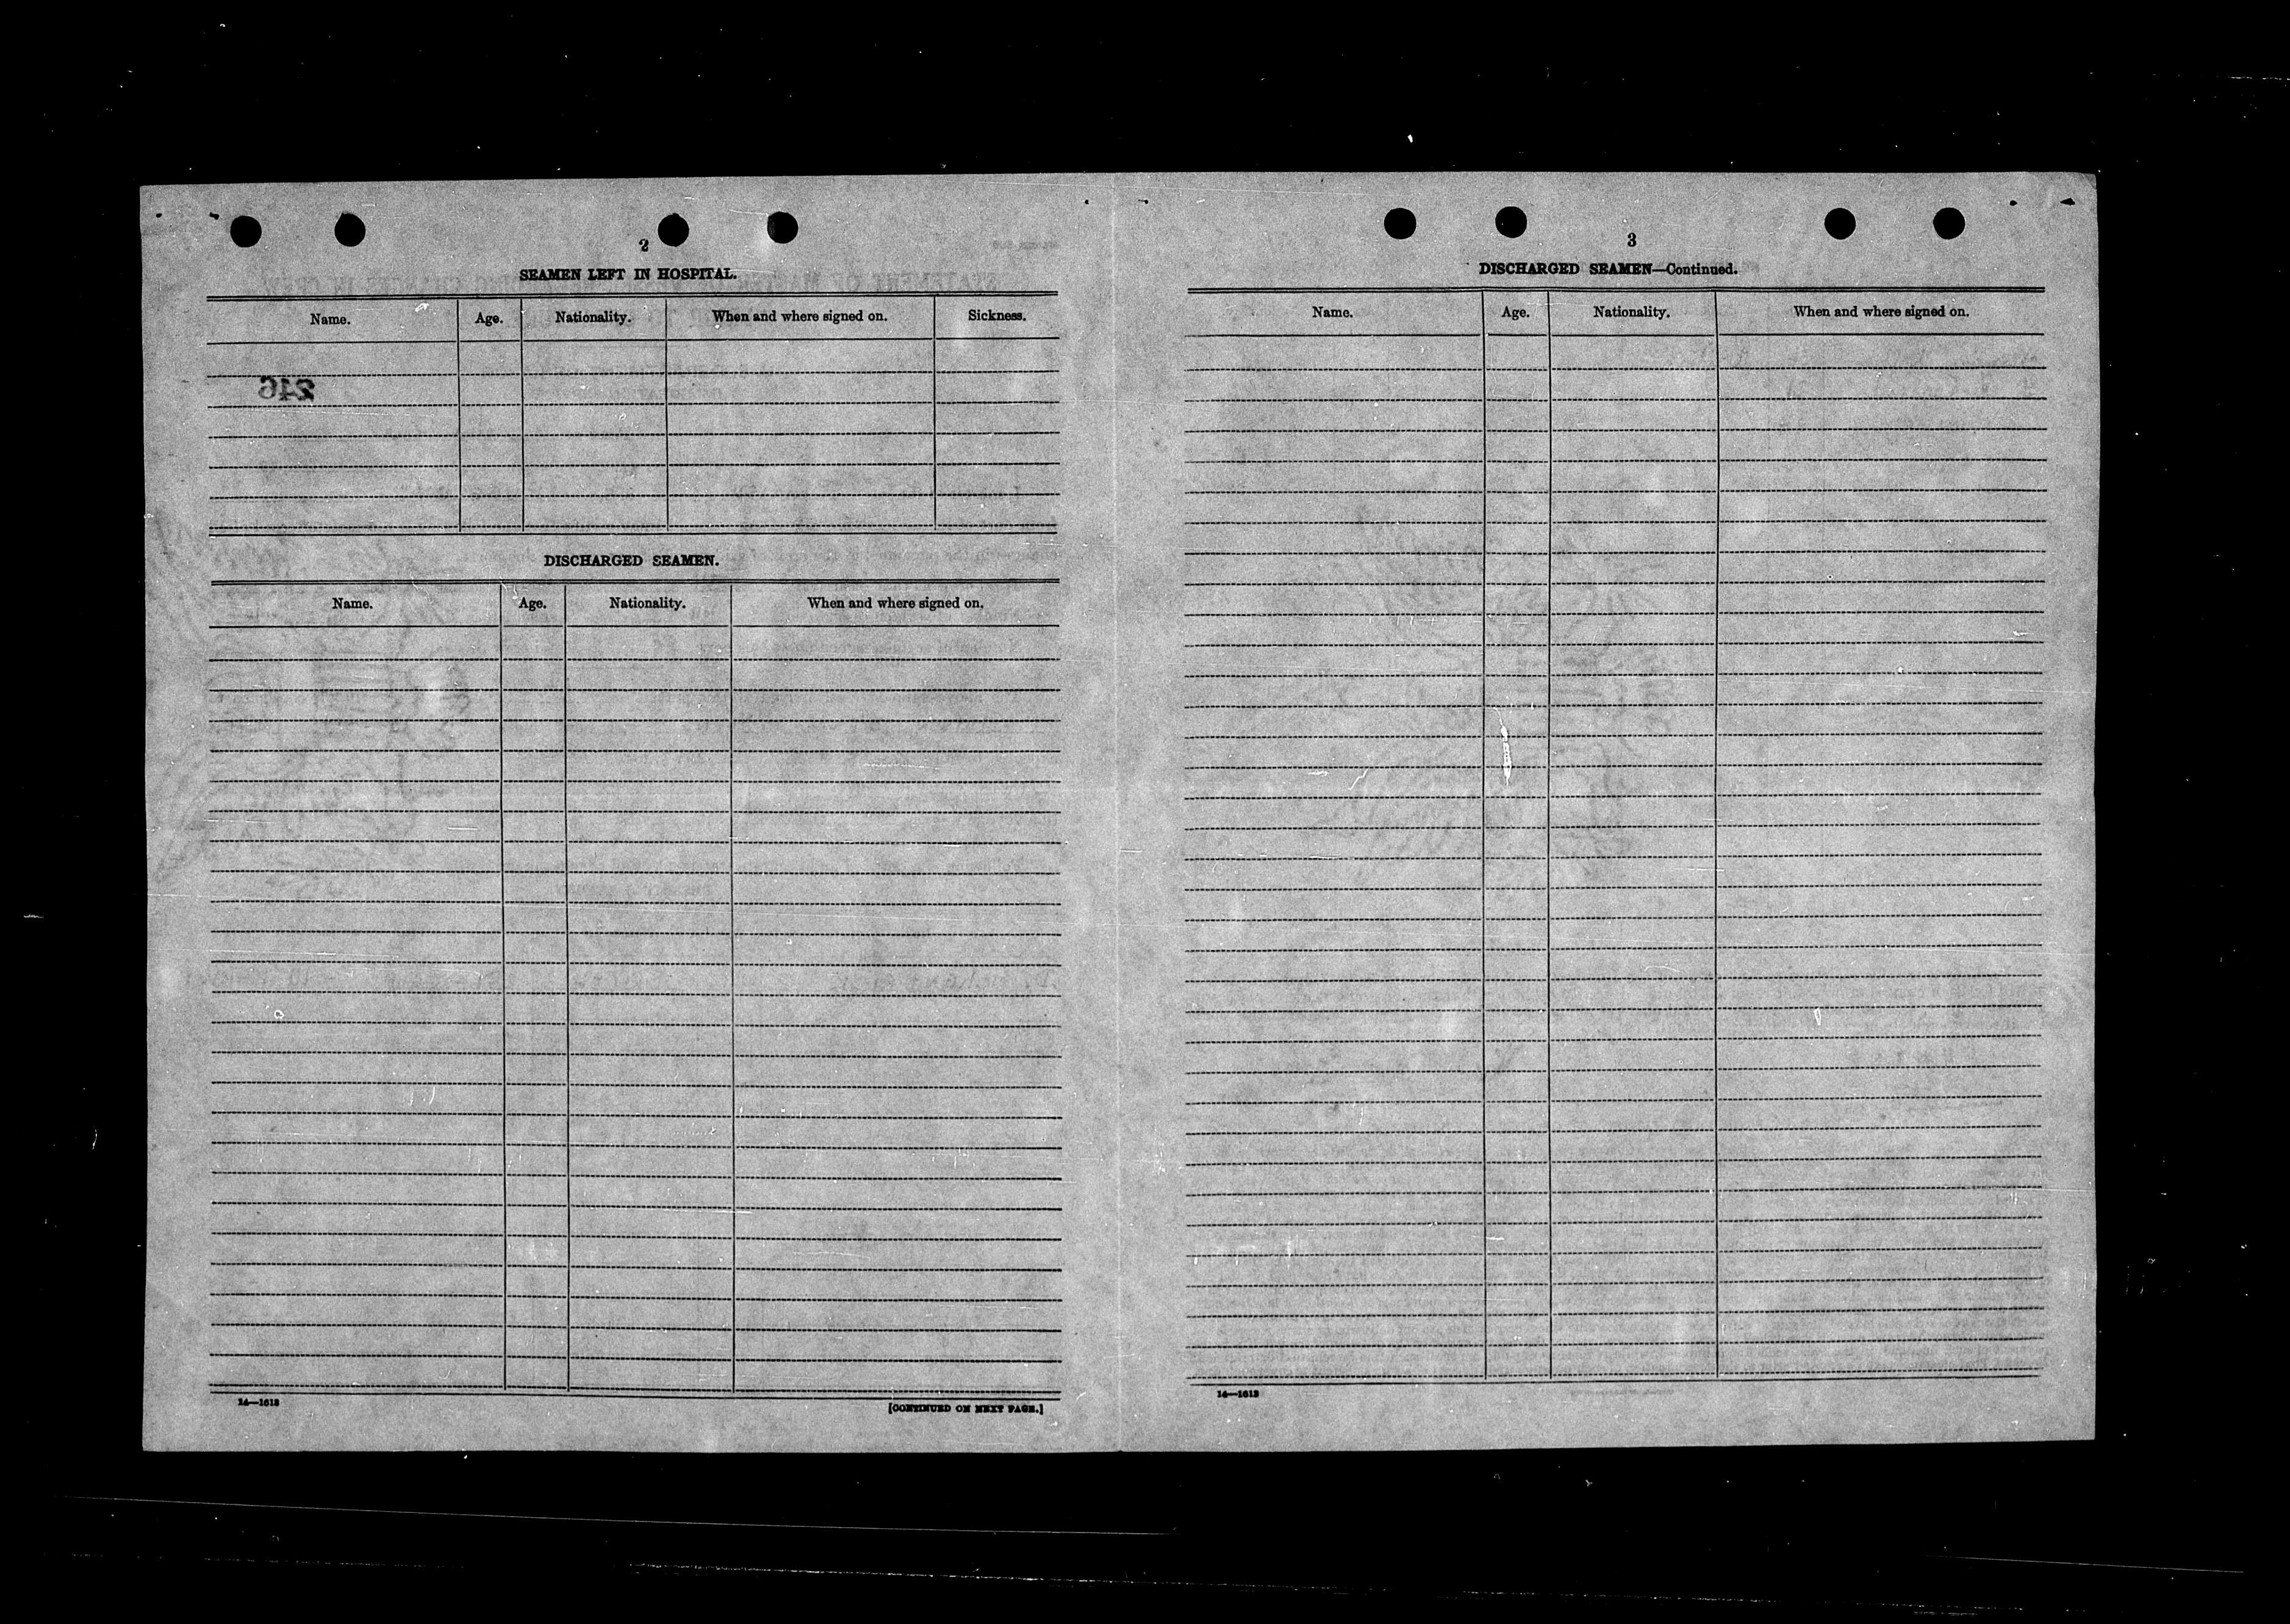 2
SEAMEN LEFT IN HOSPITAL.
Name. Age. Nationality. When and where signed on. Sickness.
246
DISCHARGED SEAMEN.
Name. Age. Nationality. When and where signed on.
14—1613
[CONTINUED ON NEXT PAGE.]
3
DISCHARGED SEAMEN—Continued.
Name. Age. Nationality. When and where signed on.
14—1613